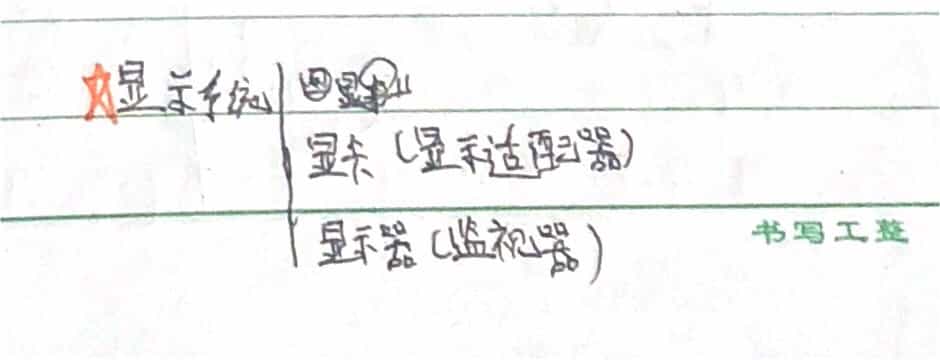 ☆显示系统
显卡(显示适配器)
显示器(监视器)
书写工整